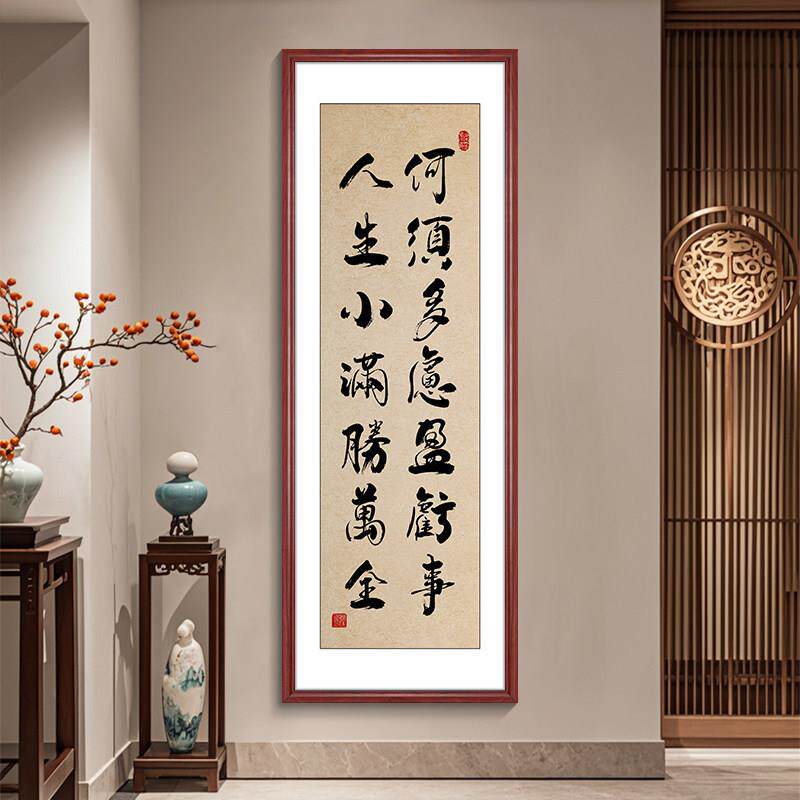 何須多慮盈虧事
人生小滿勝萬全